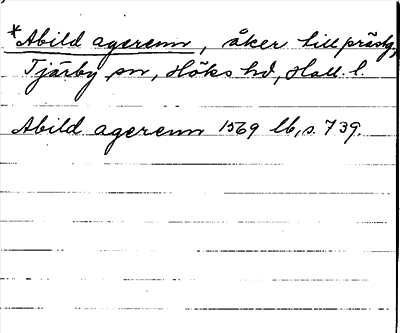 *Abild agerenn, åker till prästg,
Tjärby sn, Höks hd, Hall. l.
Abild agerenn 1569 lb, s. 739.